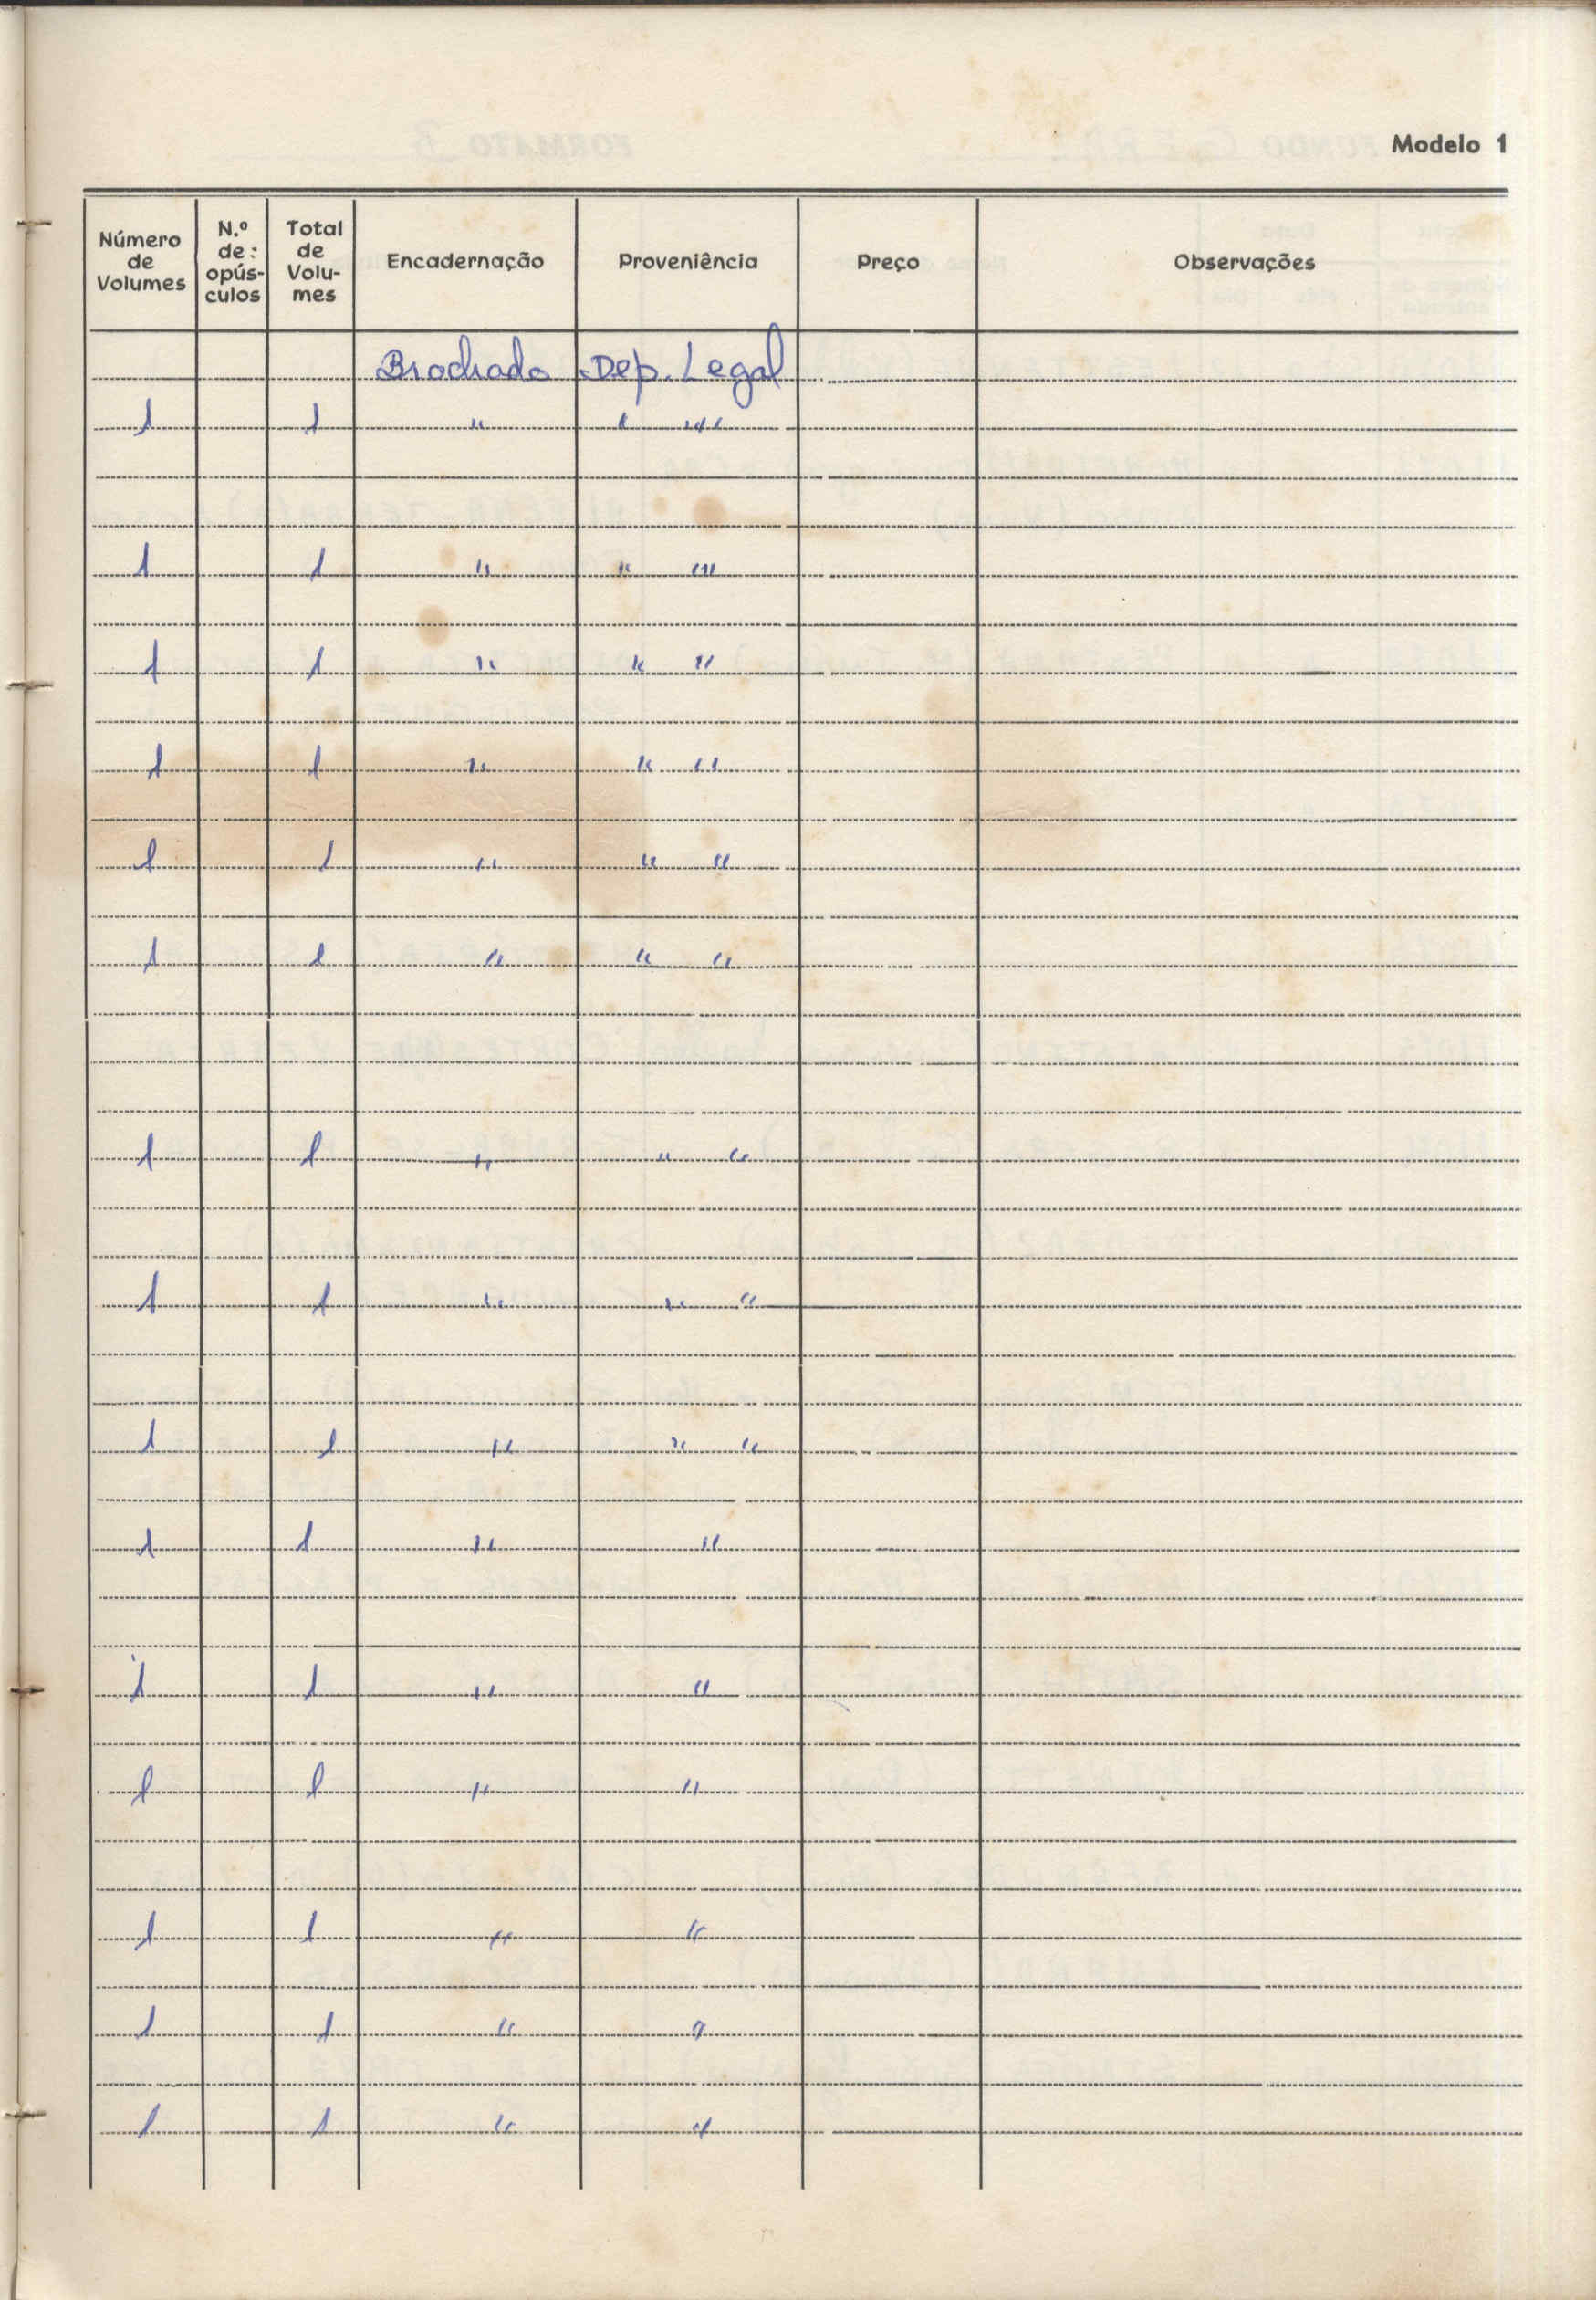 Modelo 1
Número de Volumes N.º de: opús-culos Total de Volu-mes Encadernação Proveniência Preço Observações
Brochado Dep. Legal
1 1 " " "
1 1 " " "
1 1 " " "
1 1 " " "
1 1 " " "
1 1 " " "
1 1 " " "
1 1 " " "
1 1 " " "
1 1 " "
1 1 " "
1 1 " "
1 1 " "
1 1 " "
1 1 " "